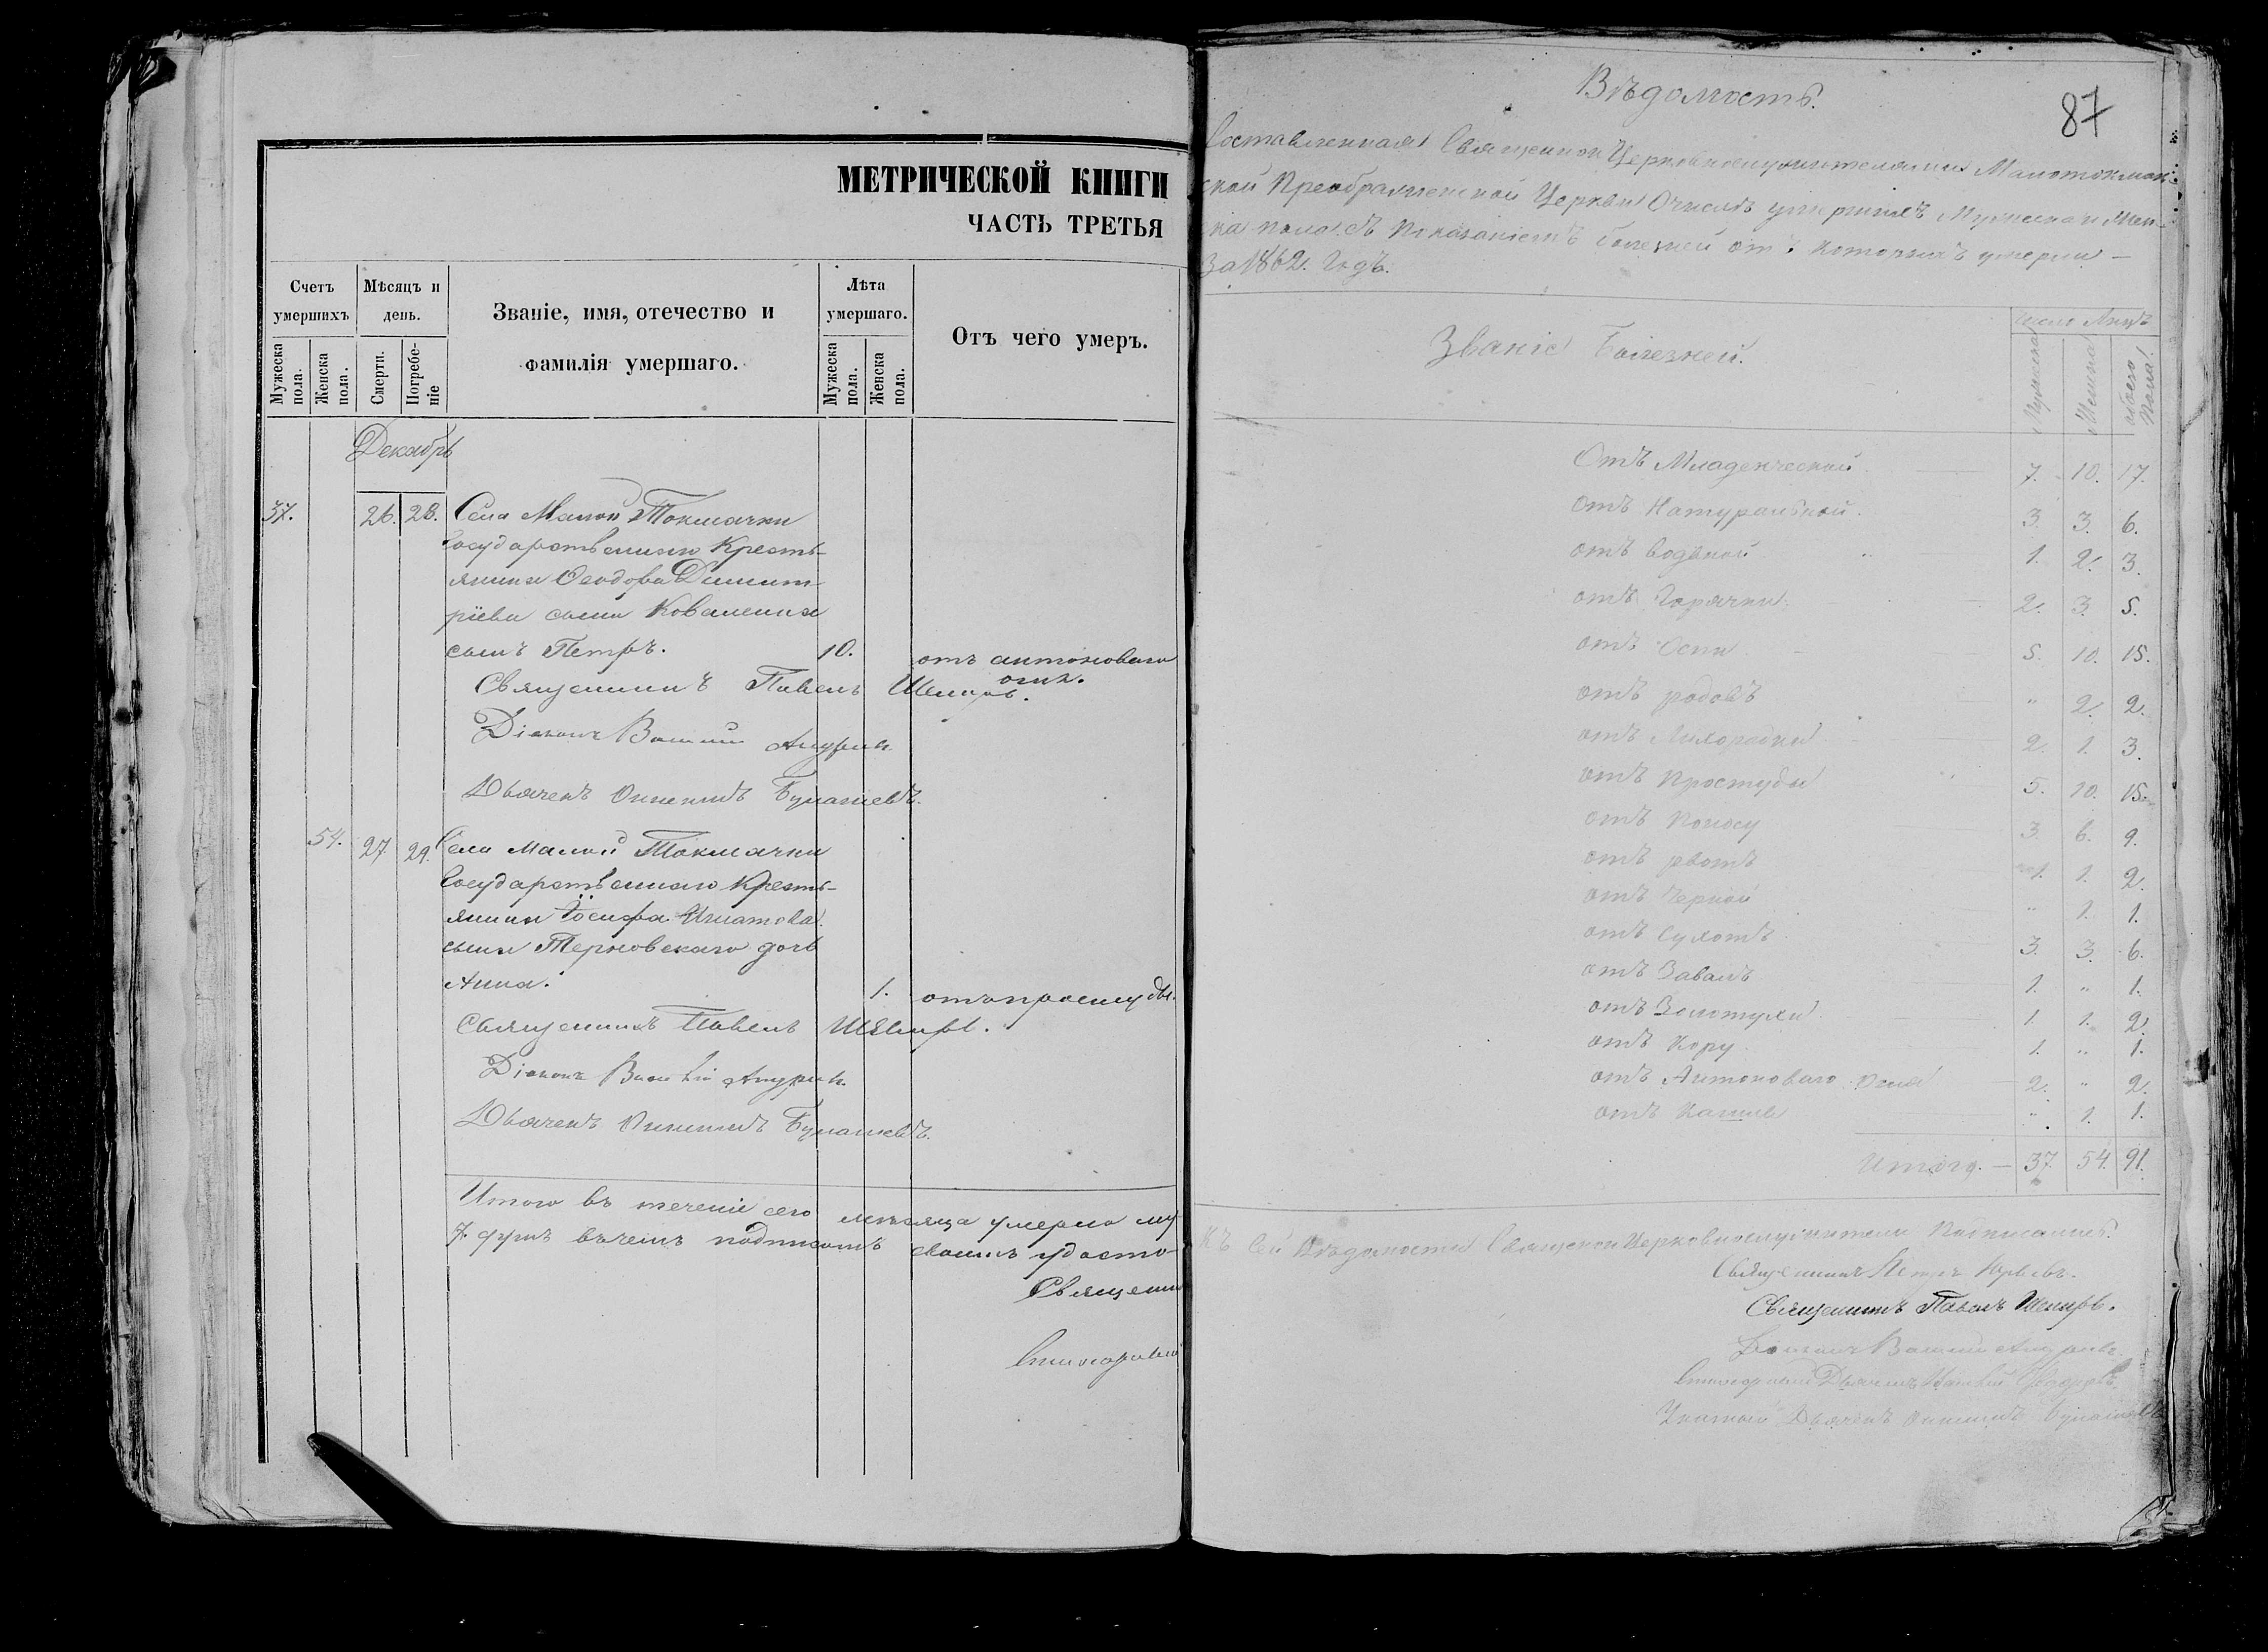 МЕТРИЧЕСКОЙ КНИГИ
ЧАСТЬ ТРЕТЬЯ
Счетъ умершихъ
Мужеска пола.
Женска пола.
Мѣсяцъ и день.
Смерти.
Погребе-ніе
Званіе, имя, отечество и
фамилія умершаго.
Лѣта умершаго.
Мужеска пола.
Женска пола.
Отъ чего умеръ.
Декабрь
37. 26. 28. Села Малой Токмачки
Государственнаго Кресть-
янина Ѳеодора Димит-
ріева сына Коваленка
сынъ Петръ. 10. отъ антоноваго
огня.
Священникъ Павелъ
Діаконъ Василій
Дьячекъ
54. 27. 29. Села Малой Токмачки
Государственнаго Кресть-
янина Іосифа Игнатова
сына Терновскаго дочь
Анна. 1. отъ простуды.
Священникъ Павелъ
Діаконъ Василій
Дьячекъ
Итого въ теченіе сего мѣсяца умерло му
7. душъ въ чемъ подписомъ своимъ удосто-
Священни
87
Вѣдомость.
Составленная Священно Церковнослужителями Малотокмач-
ской Преображенской Церкви О числѣ умершихъ Мужеска и Жен-
ска пола съ Показаніемъ болезней отъ которыхъ умерли –
За 1862. Годъ.
Званіе Болезней.
Число Лицъ
Мужеска
Женска
обоего Пола
Отъ Младенческой 7. 10. 17.
Отъ Натуральной. 3. 3. 6.
отъ Водяной 1. 2. 3.
отъ Горячки 2. 3. 5.
отъ Оспы 5. 10. 15.
отъ родовъ " 2. 2.
отъ Лихорадки 2. 1. 3.
отъ Простуды 5. 10. 15.
отъ Поносу 3. 6. 9.
отъ рвотъ 1. 1. 2.
отъ Черной " 1. 1.
отъ Сухотъ 3. 3. 6.
отъ Завалъ 1. " 1.
отъ Золотухи 1. 1. 2.
отъ Кору 1. " 1.
отъ Антоноваго Огня 2. " 2.
отъ Кашлю " 1. 1.
Итого. – 37. 54. 91.
Къ Сей Вѣдомости Священно Церковнослужители Подписались.
Священникъ
Священникъ Павелъ
Діаконъ Василій
Дьячекъ
Дьячекъ